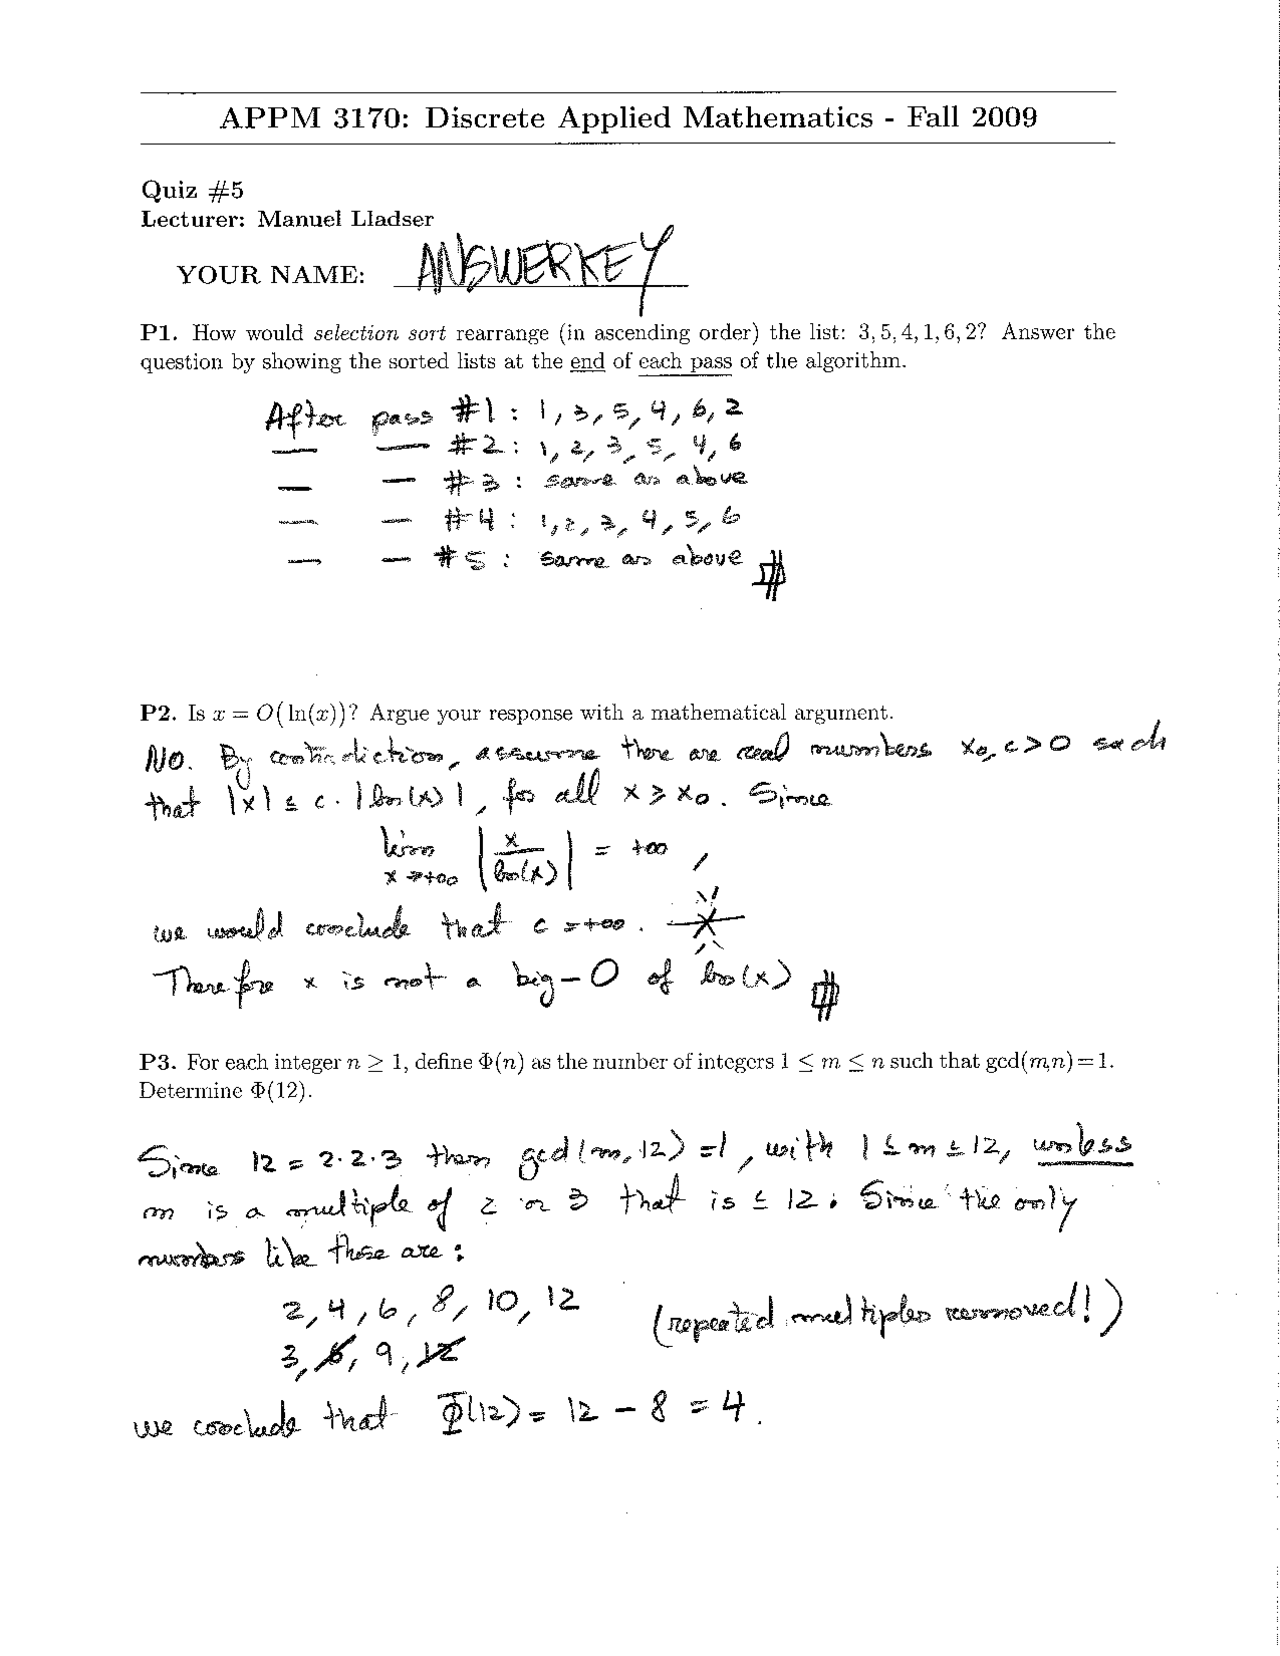 APPM 3170: Discrete Applied Mathematics - Fall 2009
Quiz #5
Lecturer: Manuel Lladser
YOUR NAME: ANSWERKEY
P1. How would selection sort rearrange (in ascending order) the list: 3, 5, 4, 1, 6, 2? Answer the
question by showing the sorted lists at the end of each pass of the algorithm.
After pass #1 : 1, 3, 5, 4, 6, 2
— — #2 : 1, 2, 3, 5, 4, 6
— — #3 : same as above
— — #4 : 1, 2, 3, 4, 5, 6
— — #5 : same as above #
P2. Is x = O(ln(x))? Argue your response with a mathematical argument.
No. By contradiction, assume there are real numbers x₀, c > 0 such
that |x| ≤ c · |ln(x)|, for all x ≥ x₀. Since
lim x→+∞ |x/ln(x)| = +∞ ,
we would conclude that c = +∞.
Therefore x is not a big-O of ln(x) #
P3. For each integer n ≥ 1, define Φ(n) as the number of integers 1 ≤ m ≤ n such that gcd(m,n)=1.
Determine Φ(12).
Since 12 = 2·2·3 then gcd(m, 12) = 1, with 1 ≤ m ≤ 12, unless
m is a multiple of 2 or 3 that is ≤ 12. Since the only
numbers like these are:
2, 4, 6, 8, 10, 12 (repeated multiples removed!)
3, 6, 9, 12
we conclude that Φ(12) = 12 - 8 = 4.